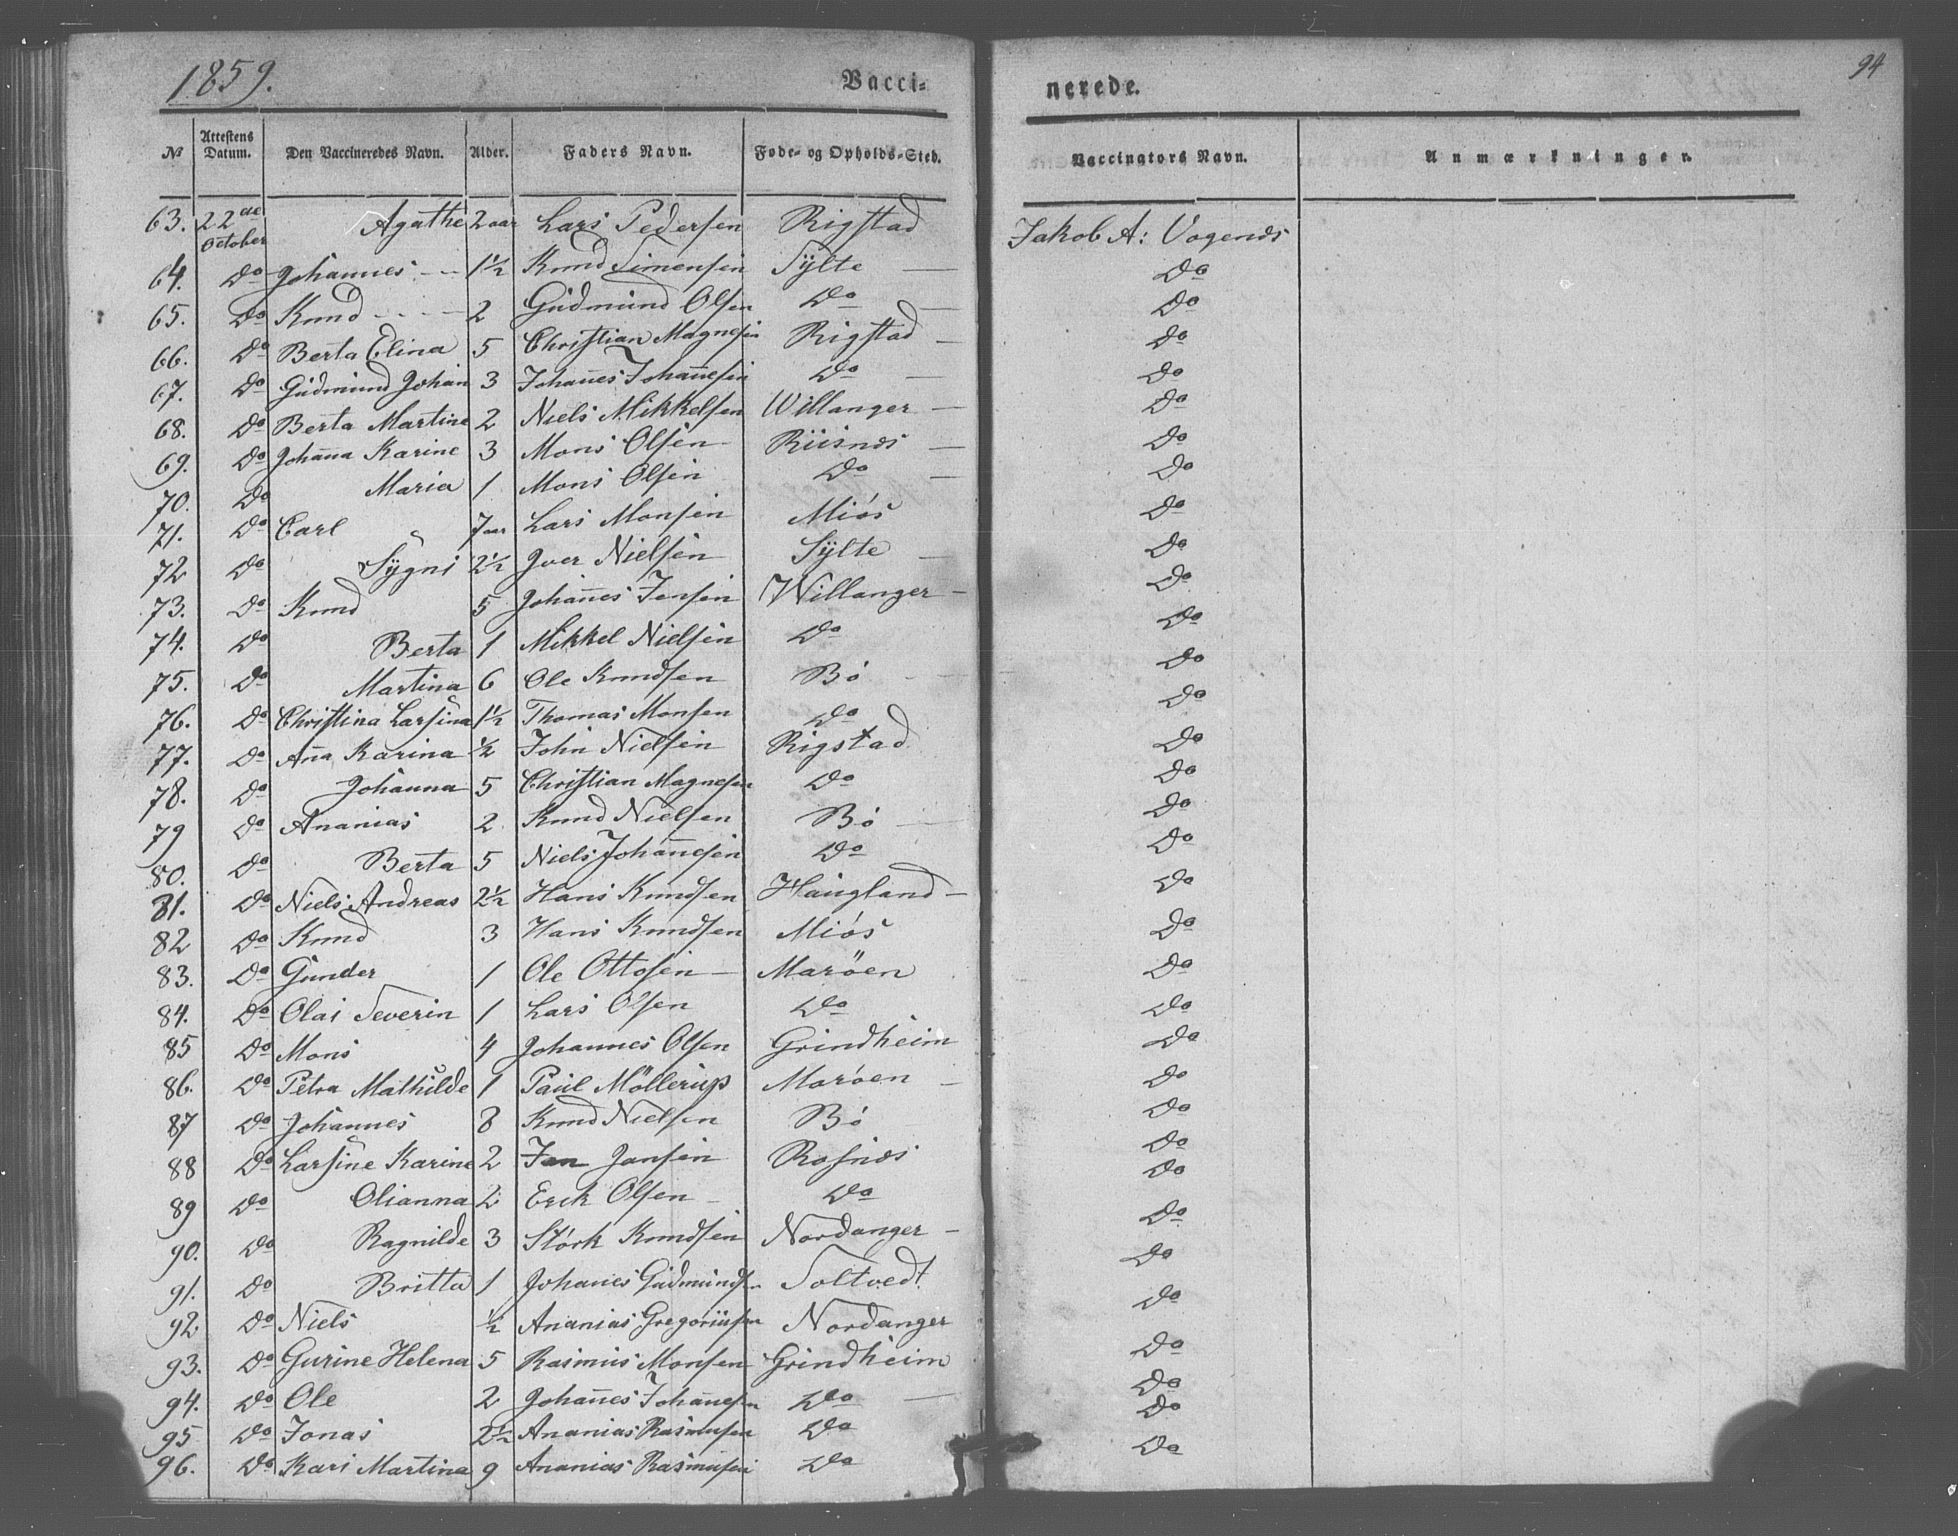 1859. Vacci- nerede. 94
No Attestens Datum. Den Vaccineredes Navn. Alder. Faders Navn. Føde- og Opholds-Sted. Vaccinators Navn. Anmærkninger.
63. 22de October Agathe 2 aar Lars Pedersen Rigstad Jakob A: Vogenæs
64. Do Johannes 1½ Knud Simensen Sylte Do
65. Do Knud 2 Gudmund Olsen Do Do
66. Do Berta Elina 5 Christian Magnesen Rigstad Do
67. Do Gudmund Johan 3 Johan̄es Johan̄esen Do Do
68. Do Berta Martine 2 Niels Mikkelsen Willanger Do
69. Do Johan̄a Karine 3 Mons Olsen Riisnæs Do
70. Do Maria 1 Mons Olsen Do Do
71. Do Carl 7 aar Lars Monsen Miøs Do
72 Do Sygni 2½ Iver Nielsen Sylte Do
73. Do Knud 5 Johan̄es Jensen Willanger Do
74. Do Berta 1 Mikkel Nielsen Do Do
75. Do Martina 6 Ole Knudsen Bø Do
76. Do Christina Larsina 1½ Thomas Monsen Do Do
77. Do An̄a Karina ½ John Nielsen Rigstad Do
78. Do Johanna 5 Christian Magnesen Do Do
79 Do Ananias 2 Knud Nielsen Bø Do
80. Do Berta 5 Niels Johan̄esen Do Do
81. Do Niels Andreas 2½ Hans Knudsen Haugland Do
82 Do Knud 3 Hans Knudsen Miøs Do
83. Do Gunder 1 Ole Ottosen Marøen Do
84. Do Olai Severin 1 Lars Olsen Do Do
85 Do Mons 4 Johannes Olsen Grindheim Do
86. Do Petra Mathilde 1 Paul Möllerup Marøen Do
87 Do Johannes 8 Knud Nielsen Bø Do
88 Do Larsine Karine 2 Jan Jansen Rosnæs Do
89 Do Olianna 2 Erik Olsen Do Do
90. Do Ragnilde 3 Størk Knudsen Nordanger Do
91. Do Britta 1 Johanes Gudmundsen Soltvedt Do
92 Do Niels ½ Ananias Gregoriusen Nordanger Do
93. Do Gurine Helena 5 Rasmus Monsen Grindheim Do
94. Do Ole 2 Johan̄es Johan̄esen Do Do
95 Do Jonas 2½ Ananias Rasmusen Do Do
96. Do Kari Martina 9 Ananias Rasmusen Do Do